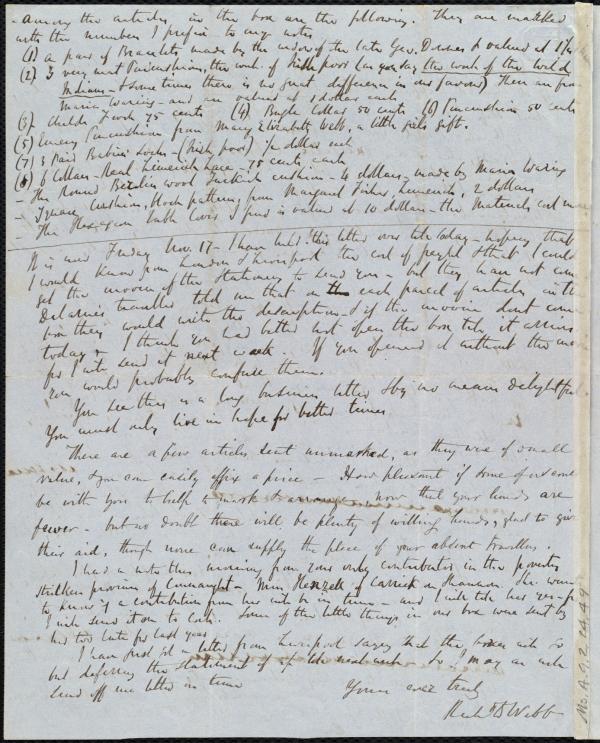 - Among the articles in the box are the following. They are marked
with the numbers I prefix to my notes
(1) a pair of Bracelets made by the widow of the late Geo. Downes & valued at
(2) 3 very neat Pincushions, the work of Irish poor (as you say the work of the wild
Indians - & sometimes there is no great difference in our favour) These are from
Maria Waring - and are valued at 1 dollar each
(3) Childs Frock 75 cents (4) Bugle Collar 50 cents (6) Pincushion 50 cents
(5) Emery Pincushion from Mary Elizabeth Webb, a little girls gift.
(7) 3 Pair Babies Socks - (Irish poor) ½ dollar each
(8) 6 Collars - Real Limerick Lace - 75 cents each
- The Round Berlin wool Turkish cushion - 4 dollars - made by Maria Waring
- Square Cushion, block pattern, from Margaret Fisher, Limerick, 2 dollars
- The Hexagon table Cover I find is valued at 10 dollars - the Materials cost more
It is now Friday Nov. 17 - I have held this letter over till today - hoping that
I would know from London & Liverpool the cost of freight & that I could
get the invoice of the Stationery to send you - but they have not come
Delarue's traveller told me that on each parcel of articles in the
box they would write the description - & if the invoice dont come
today, I think you had better not open the box till it arrives
for I will send it next week. If you opened it without the invoice
you would probably confuse them.
You see this is a long business letter & by no means delightful.
You must only live in hope for better times.
There are a few articles sent unmarked, as they were of small
value, & you can easily affix a price - How pleasant if some of us could
be with you to help to mark & arrange - now that your hands are
fewer - but no doubt there will be plenty of willing hands, glad to give
their aid, though none can supply the place of your absent travellers.
I had a note this morning from your only contributor in the poverty
stricken province of Connaught - Miss Kenzett of Carrick on Shannon. She wants
to know if a contribution from her will be in time - and I will tell her yes - for
I will send it on to Cork. Some of the little things in our box were sent by
her too late for last year
I have just got a letter from Liverpool saying that the boxes will go
but deferring the statement of till next week - So I may as well
send off this letter in time
Yours ever truly
Richd D Webb
Ms. A. 9. 2. 24. 49